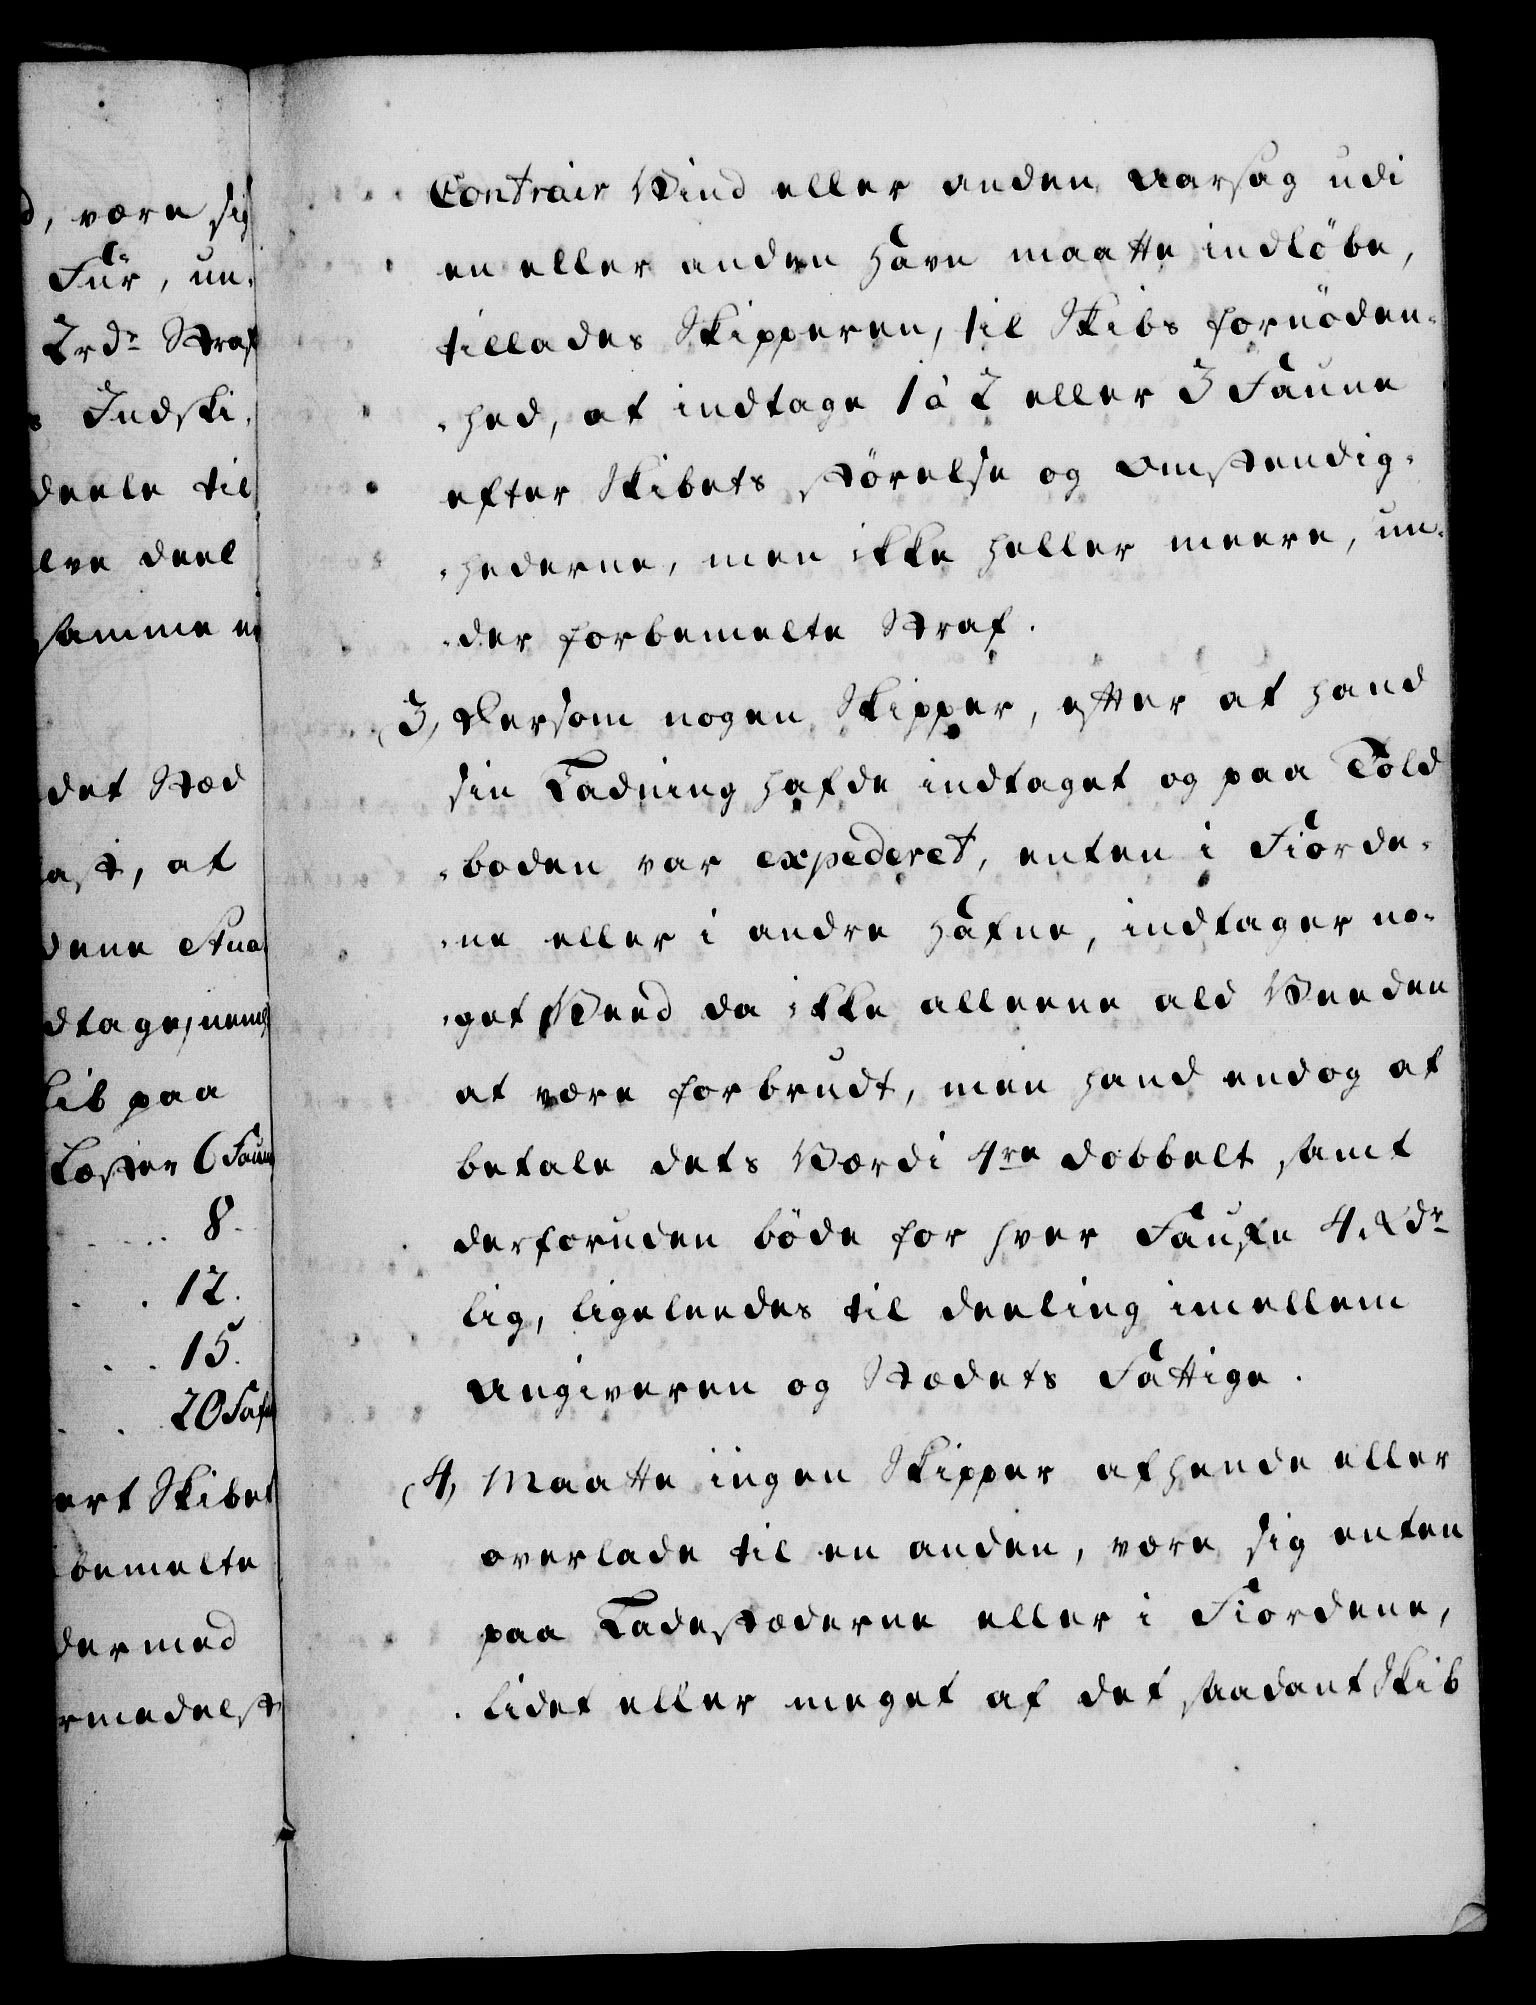 d, være sig
Für, un-
2rdr Straf
s Indski-
deele til
lve deel
samme er
det Sted
ast, at
dene Stua
dtage, neml
kib paa
Læster 6 Faun
8.
12.
15.
20 Fafn
ert Skibet
bemelte
der med
rmedelst
Contrair Vind eller anden Aarsag udi
en eller anden Havn maatte indløbe,
tillades Skipperen, til Skibs fornøden-
-hed, at indtage 1 à 2 eller 3 Faune
efter Skibets størelse og Omstendig-
-hederne, men ikke heller meere, un-
-der forbemelte Straf.
(3, Dersom nogen Skipper, efter at hand
sin Ladning hafde indtaget og paa Told
-boden var expederet, enten i Fiorde-
-ne eller i andre Hafne, indtager no-
-get Veed da ikke alleene ald Veeden
at være forbrudt, men hand endog at
betale dets Værdi 4re dobbelt samt
derforuden bøde for hver Faufn 4. Rdr
lig, ligeleedes til deeling imellem
Angiveren og Stædets Fattige.
(4, Maatte ingen Skipper afhende eller
overlade til en anden, være sig enten
paa Ladestæderne eller i Fiordene,
lidet eller meget af det saadant Skib